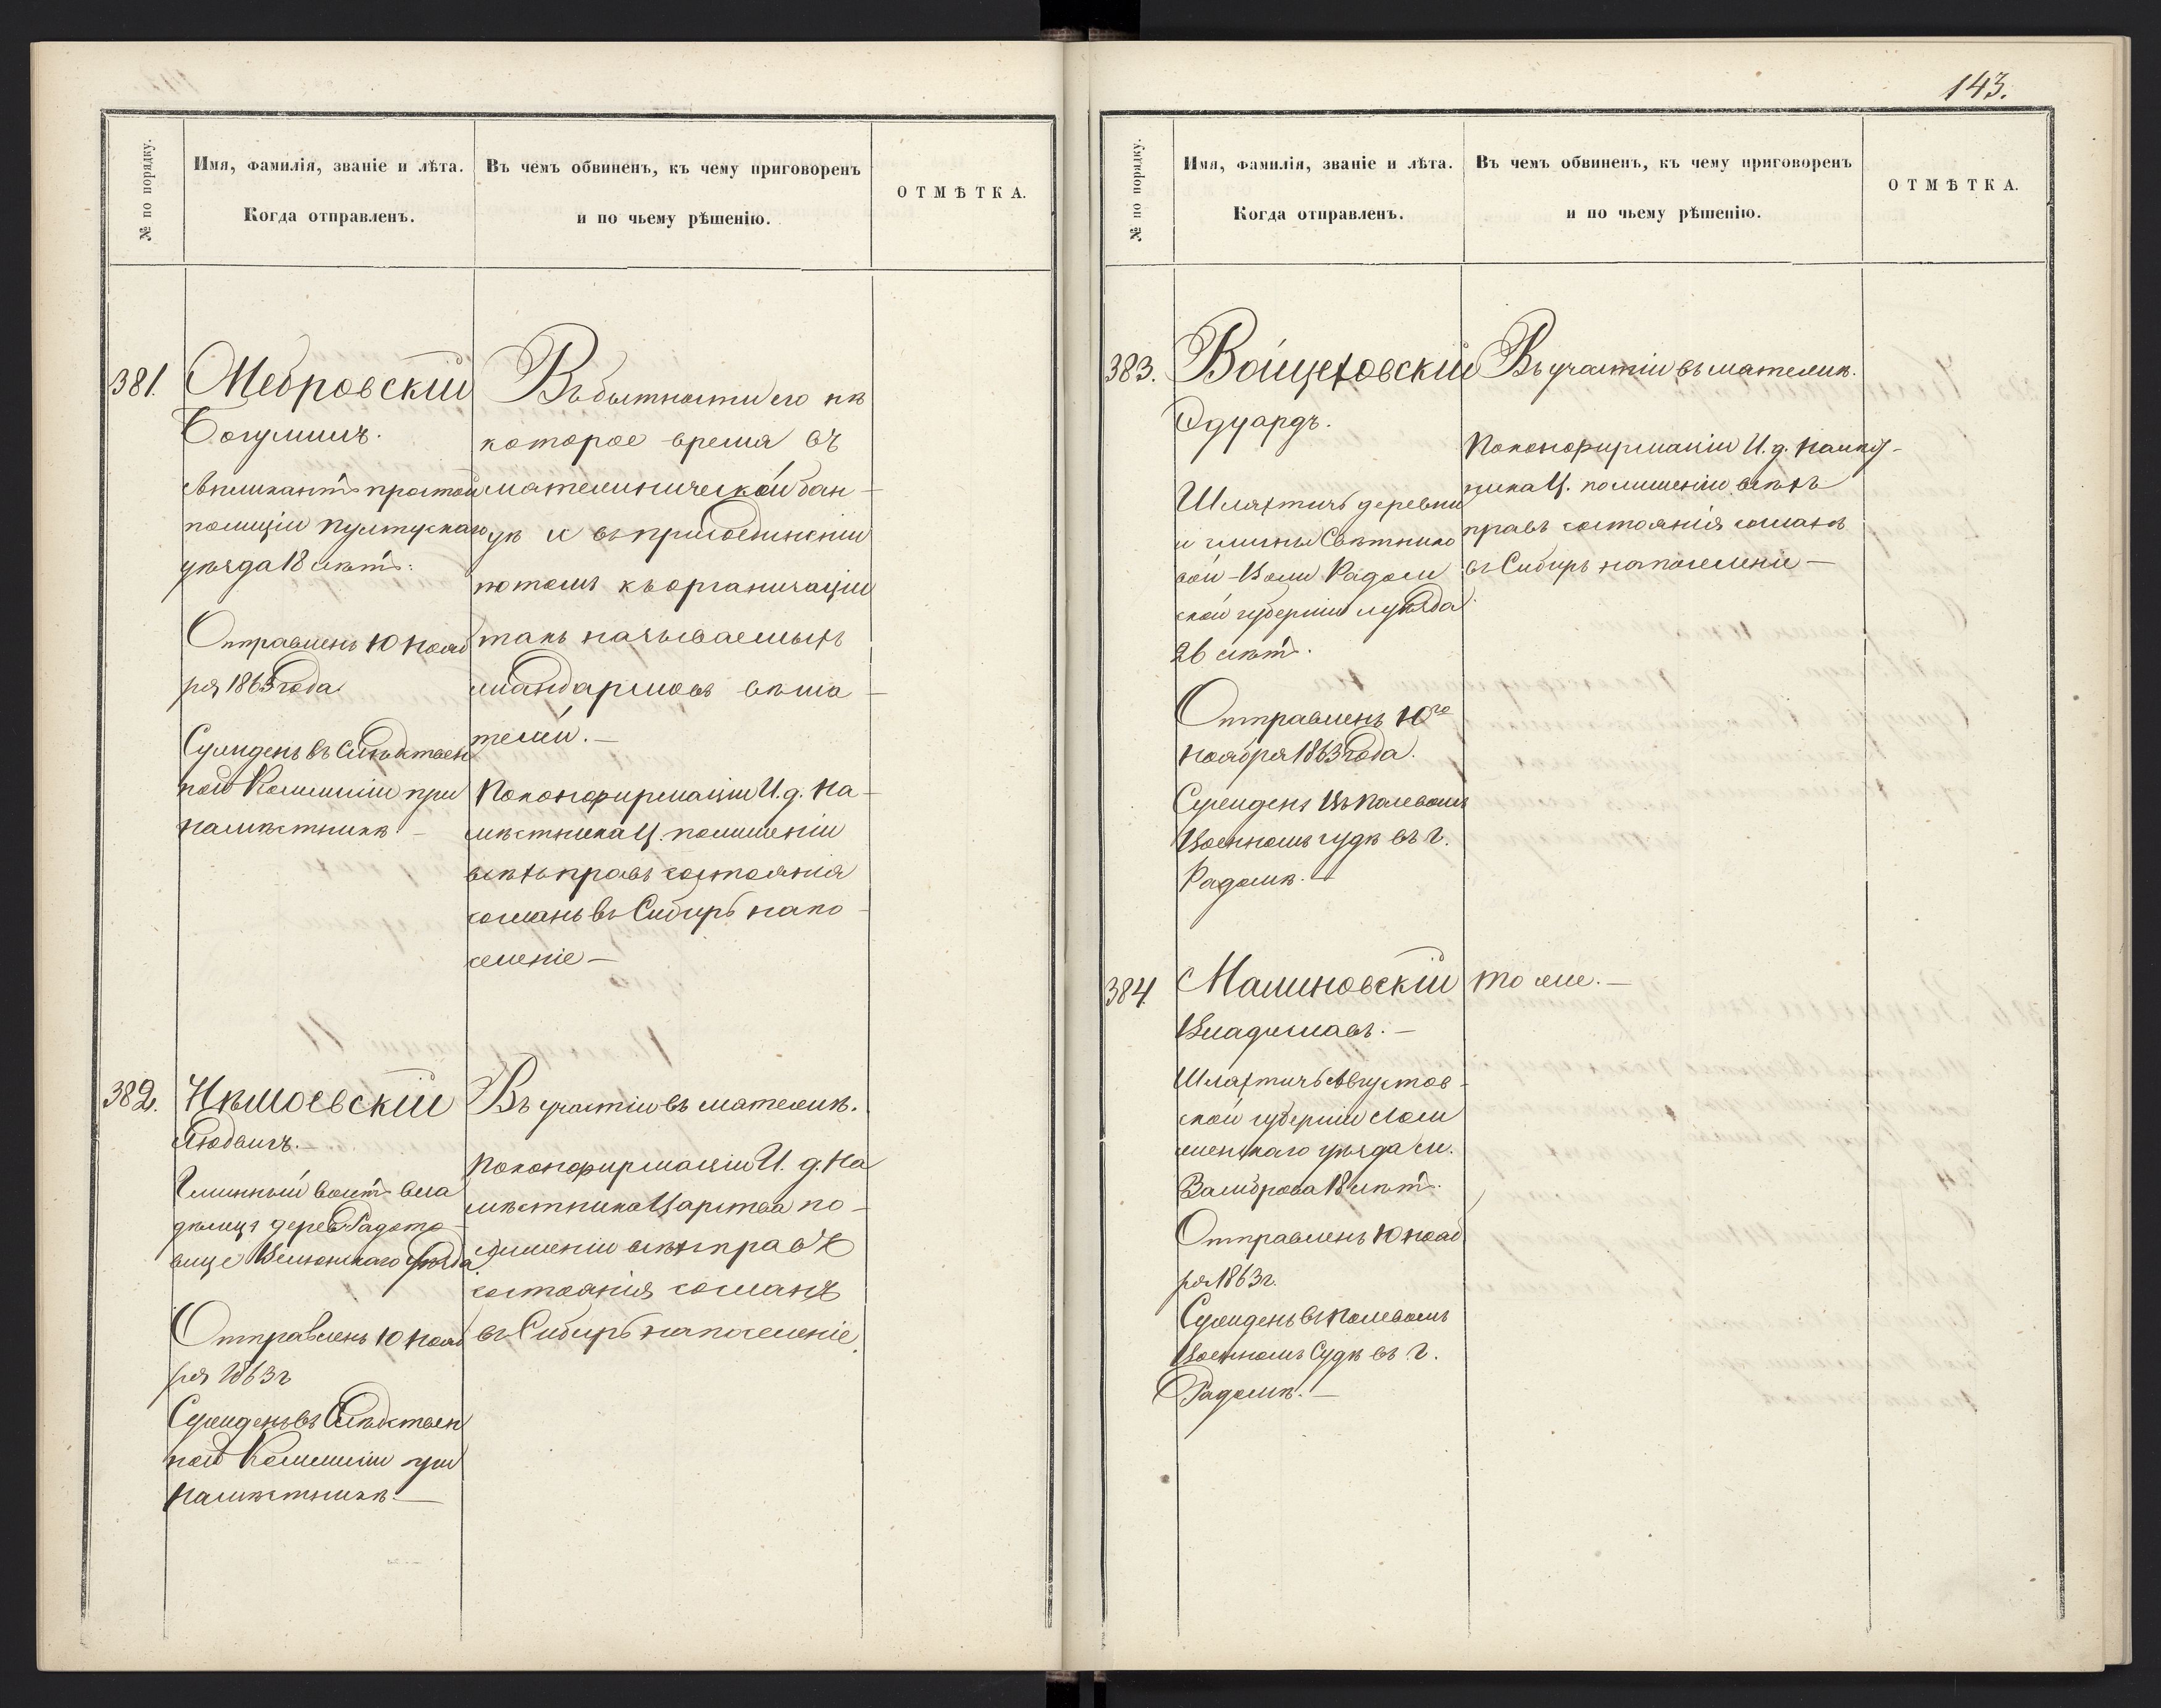 № по порядку.
Имя, фамилія, званіе и лѣта.
Когда отправленъ.
Въ чемъ обвиненъ, къ чему приговоренъ
и по чьему рѣшенію.
ОТМѢТКА.
381.
Мебровскій
Богумилъ.
Апликантъ простой
полиціи Пултускаго
уѣзда 18 лѣтъ.
Отправленъ 10 Нояб
ря 1863 года
Сужденъ въ Слѣдствен
ной Коммиссіи при
Намѣстникѣ —
Въ бытности его нѣ
которое время въ
мятежнической бан-
дѣ и въ присоединеніи
потомъ къ организаціи
такъ называемыхъ
жандармовъ вѣша-
телей. —
По конфирмаціи И. д. На-
мѣстника Ц. по лишеніи
всѣхъ правъ состоянія
сосланъ въ Сибирь на по-
селеніе —
382.
Нѣмоевскій
Людвигъ. —
Гминный войтъ вла
дѣлецъ дерев.
Велюнскаго уѣзда
Отправленъ 10 Нояб
ря 1863 г
Сужденъ въ Слѣдствен
ной Коммиссіи при
Намѣстникѣ. —
Въ участіи въ мятежѣ.
По конфирмаціи И. д. На
мѣстника Царства по-
лишеніи всѣхъ правъ
состоянія сосланъ
въ Сибирь на поселеніе.
143.
№ по порядку.
Имя, фамилія, званіе и лѣта.
Когда отправленъ.
Въ чемъ обвиненъ, къ чему приговоренъ
и по чьему рѣшенію.
ОТМѢТКА.
383.
Войцеховскій
Эдуардъ.
Шляхтичъ деревни
и гмины Свѣтнико
вой-Воли Радом
ской губерніи и уѣзда
26 лѣтъ.
Отправленъ 10го
Ноября 1863 года.
Сужденъ въ Полевомъ
Военномъ судѣ въ г.
Радомѣ. —
Въ участіи въ мятежѣ.
По конфирмаціи И. д. Намѣс-
ника Ц. по лишеніи всѣхъ
правъ состоянія сосланъ
въ Сибирь на поселеніе —
384.
Малиновскій
Владиславъ. —
Шляхтичъ Августов-
ской губерніи Лом
женскаго уѣзда м.
Замброва 18 лѣтъ.
Отправленъ 10 Нояб
ря 1863 г.
Сужденъ въ Полевомъ
Военномъ Судѣ въ г.
Радомѣ. —
То же. —